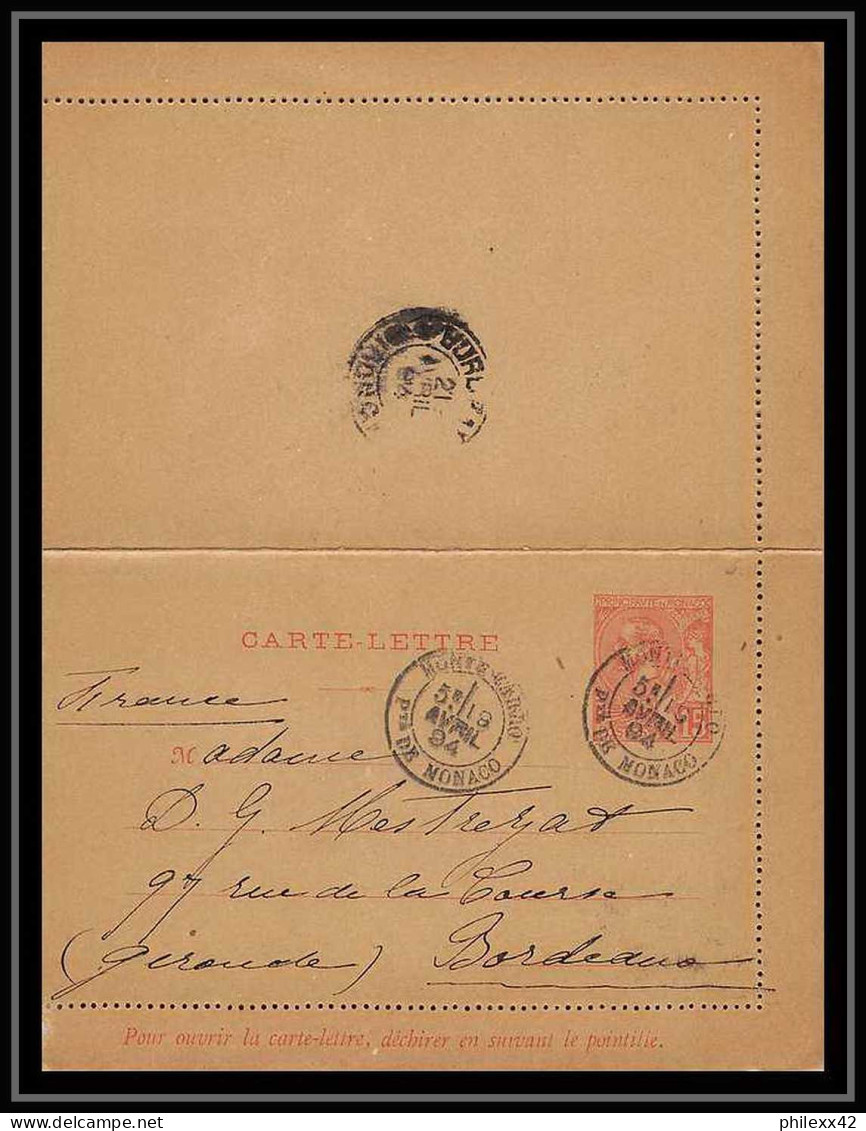 21
AVRIL
94
CARTE-LETTRE
France
MONTE-CARLO
5E 19
AVRIL
94
Pté DE MONACO
MONTE-CARLO
5E 19
AVRIL
94
Pté DE MONACO
15
Madame
D. G. Mestrezat
97 rue de la Course
(Gironde) Bordeaux
Pour ouvrir la carte-lettre, déchirer en suivant le pointillé.
philexx42